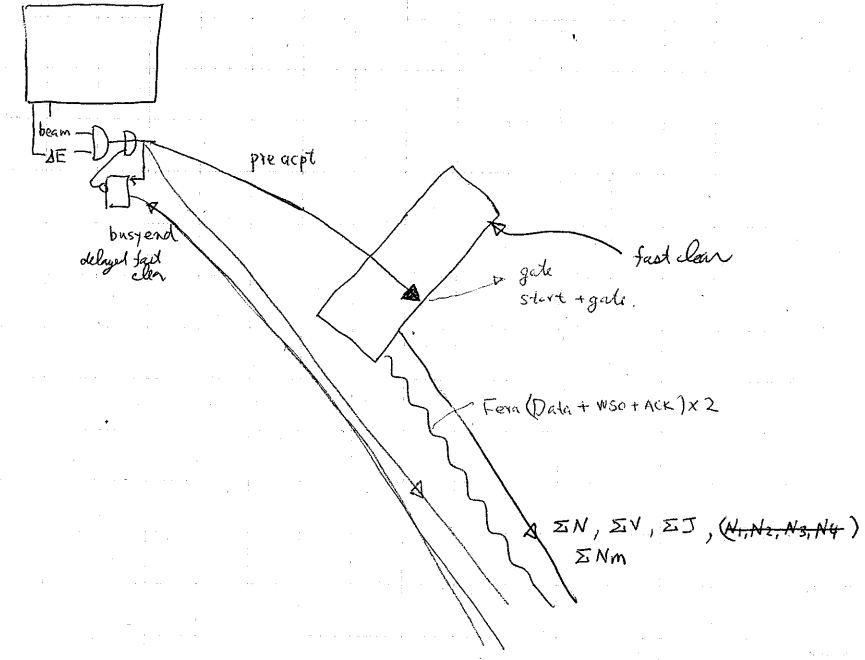 beam
ΔE
pre acpt
busy end
delayed fast
clear
fast clear
gate
start + gate.
Fera (Data + WSO + ACK) × 2
ΣN, ΣV, ΣJ, (N1, N2, N3, N4)
ΣNm